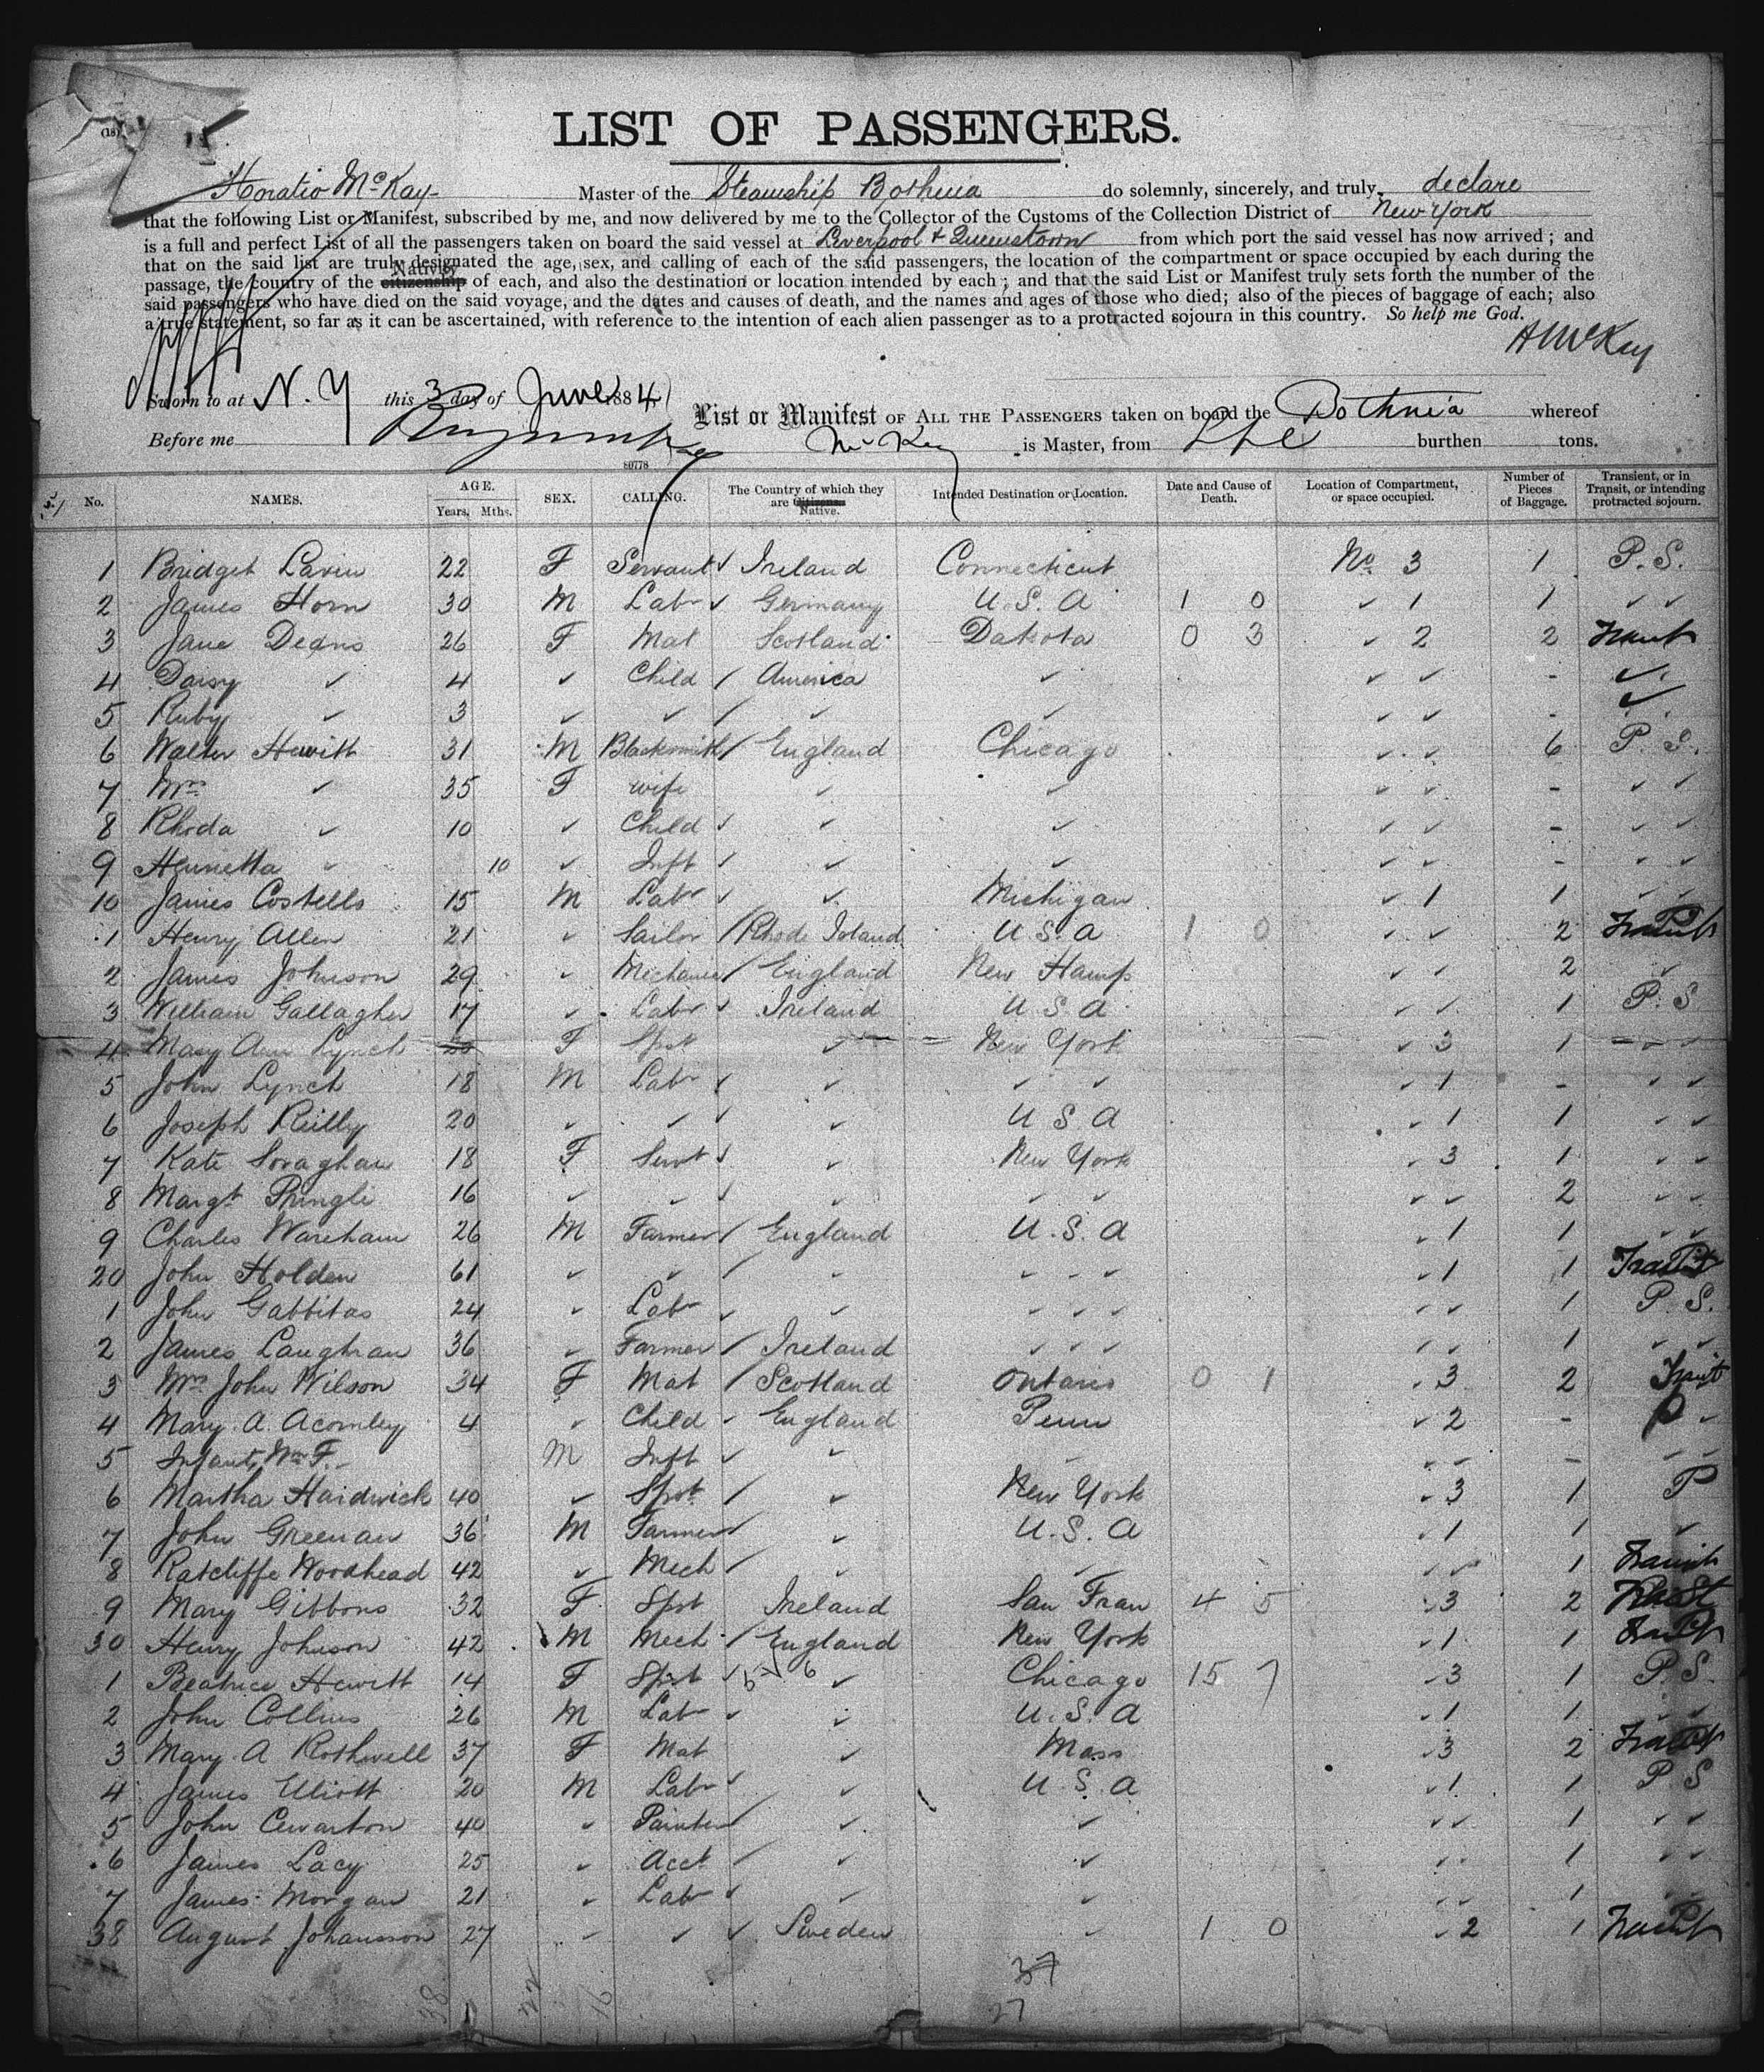 (18)
LIST OF PASSENGERS.
Horatio McKay Master of the Steamship Bothnia do solemnly, sincerely, and truly declare
that the following List or Manifest, subscribed by me, and now delivered by me to the Collector of the Customs of the Collection District of New York
is a full and perfect List of all the passengers taken on board the said vessel at Liverpool & Queenstown from which port the said vessel has now arrived; and
that on the said list are truly designated the age, sex, and calling of each of the said passengers, the location of the compartment or space occupied by each during the
Nativity
passage, the country of the citizenship of each, and also the destination or location intended by each; and that the said List or Manifest truly sets forth the number of the
said passengers who have died on the said voyage, and the dates and causes of death, and the names and ages of those who died; also of the pieces of baggage of each; also
a true statement, so far as it can be ascertained, with reference to the intention of each alien passenger as to a protracted sojourn in this country. So help me God.
H McKay
Sworn to at N.Y this 3 day of June 1884
List or Manifest OF ALL THE PASSENGERS taken on board the Bothnia whereof
Before me McKay is Master, from burthen tons.
80778
No. NAMES. AGE. Years. Mths. SEX. CALLING. The Country of which they are Citizens. Native. Intended Destination or Location. Date and Cause of Death. Location of Compartment, or space occupied. Number of Pieces of Baggage. Transient, or in Transit, or intending protracted sojourn.
1 Bridget Lavin 22 F Servant ✓ Ireland Connecticut No. 3 1 P.S.
2 James Horn 30 M Labr ✓ Germany U.S.A 1 0 ✓ 1 1 ✓ ✓
3 Jane Deans 26 F Mat Scotland Dakota 0 3 ✓ 2 2 Transit
4 Daisy ✓ 4 ✓ Child / America ✓ ✓ ✓ - ✓
5 Ruby ✓ 3 ✓ ✓ / ✓ ✓ ✓ ✓ - ✓
6 Walter Hewitt 31 M Blacksmith / England Chicago ✓ ✓ 6 P.S.
7 Mrs ✓ 35 F wife ✓ ✓ ✓ ✓ - ✓ ✓
8 Rhoda ✓ 10 ✓ Child ✓ ✓ ✓ ✓ ✓ - ✓ ✓
9 Henrietta ✓ 10 ✓ Inft ✓ ✓ ✓ ✓ ✓ - ✓ ✓
10 James Costello 15 M Labr ✓ ✓ Michigan ✓ 1 1 ✓ ✓
1 Henry Allen 21 ✓ Sailor / Rhode Island U.S.A 1 0 ✓ ✓ 2
2 James Johnson 29 ✓ Mechanic / England New Hamp ✓ ✓ 2 ✓
3 William Gallagher 17 ✓ Labr ✓ Ireland U.S.A ✓ ✓ 1 P.S
4 Mary Ann Lynch F Spst ✓ New York ✓ 3 1 ✓ ✓
5 John Lynch 18 M Labr ✓ ✓ ✓ ✓ ✓ 1 - ✓ ✓
6 Joseph Reilly 20 ✓ ✓ ✓ ✓ U S A ✓ 1 1 ✓ ✓
7 Kate Soraghan 18 F Servt ✓ ✓ New York ✓ 3 1 ✓ ✓
8 Margt Pringle 16 ✓ ✓ ✓ ✓ ✓ ✓ ✓ ✓ 2 ✓ ✓
9 Charles Wareham 26 M Farmer / England U.S.A ✓ 1 1 ✓ ✓
20 John Holden 61 ✓ ✓ / ✓ ✓ ✓ ✓ ✓ 1 1
1 John Gabbitas 24 ✓ Labr ✓ ✓ ✓ ✓ ✓ ✓ ✓ 1 P.S.
2 James Laughran 36 ✓ Farmer / Ireland ✓ ✓ ✓ ✓ ✓ 1 ✓ ✓
3 Mrs John Wilson 34 F Mat / Scotland Ontario 0 1 ✓ 3 2
4 Mary A. Acomley 4 ✓ Child ✓ England Penn ✓ 2 - P ✓
5 Infant, Wm F. M Inft ✓ ✓ ✓ ✓ ✓ - ✓ ✓
6 Martha Hardwick 40 ✓ Spst / ✓ New York ✓ 3 1 P
7 John Greenan 36 M Farmer / ✓ U.S.A ✓ 1 1 ✓
8 Ratcliffe Woodhead 42 ✓ Mech / ✓ ✓ ✓ ✓ 1 Transit
9 Mary Gibbons 32 F Spst Ireland San Fran 4 5 ✓ 3 2
30 Henry Johnson 42 M Mech / England New York ✓ 1 1
1 Beatrice Hewitt 14 F Spst ✓ ✓ Chicago 15 7 ✓ 3 1 P.S.
2 John Collins 26 M Labr ✓ ✓ U.S.A ✓ 1 1 ✓ ✓
3 Mary A Rothwell 37 F Mat ✓ Mass ✓ 3 2
4 James Elliott 20 M Labr ✓ ✓ U.S.A ✓ 1 1 P S
5 John 40 ✓ Painter / ✓ ✓ ✓ ✓ 1 ✓ ✓
6 James Lacy 25 ✓ Acct / ✓ ✓ ✓ ✓ 1 ✓ ✓
7 James Morgan 21 ✓ Labr ✓ ✓ ✓ ✓ ✓ 1 ✓ ✓
38 August Johansson 27 ✓ ✓ ✓ Sweden ✓ 1 0 ✓ 2 1
37
27
38 22 16